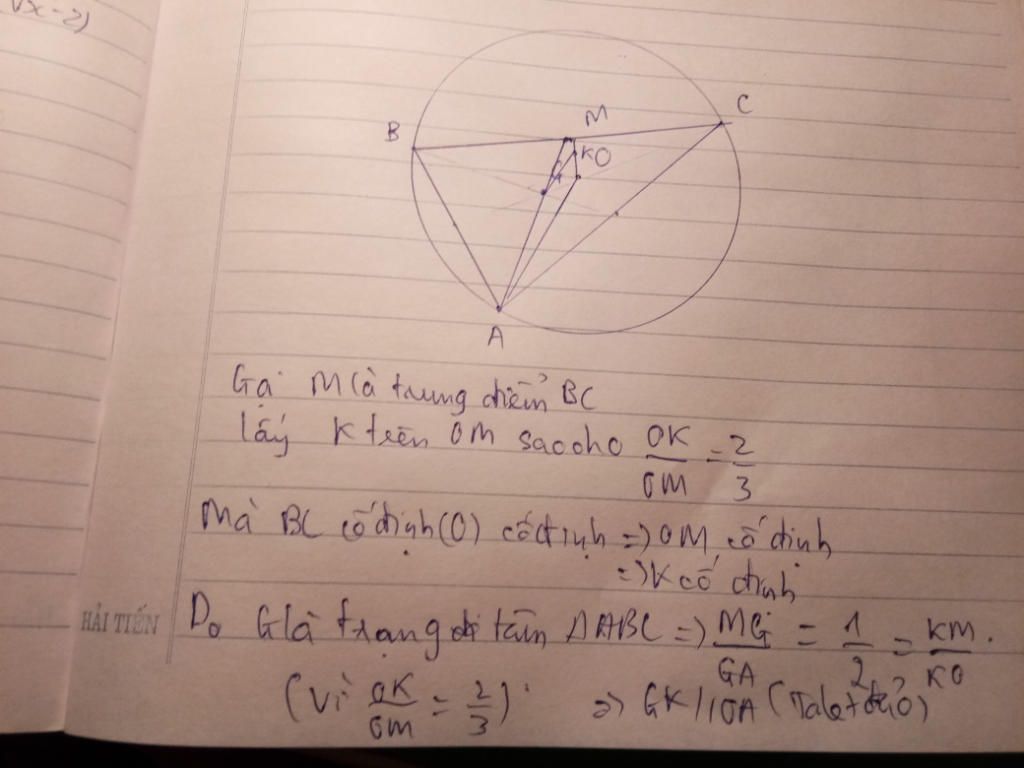 √x-2)
C
M
B
K O
G
A
Gọi M là trung điểm BC
lấy K trên OM sao cho OK/OM = 2/3
Mà BC cố định (O) cố định => OM cố định
=> K cố định
HẢI TIẾN
Do G là trọng tâm ΔABC => MG/GA = 1/2 = KM/KO.
(Vì OK/OM = 2/3) => GK // OA (Talet đảo)